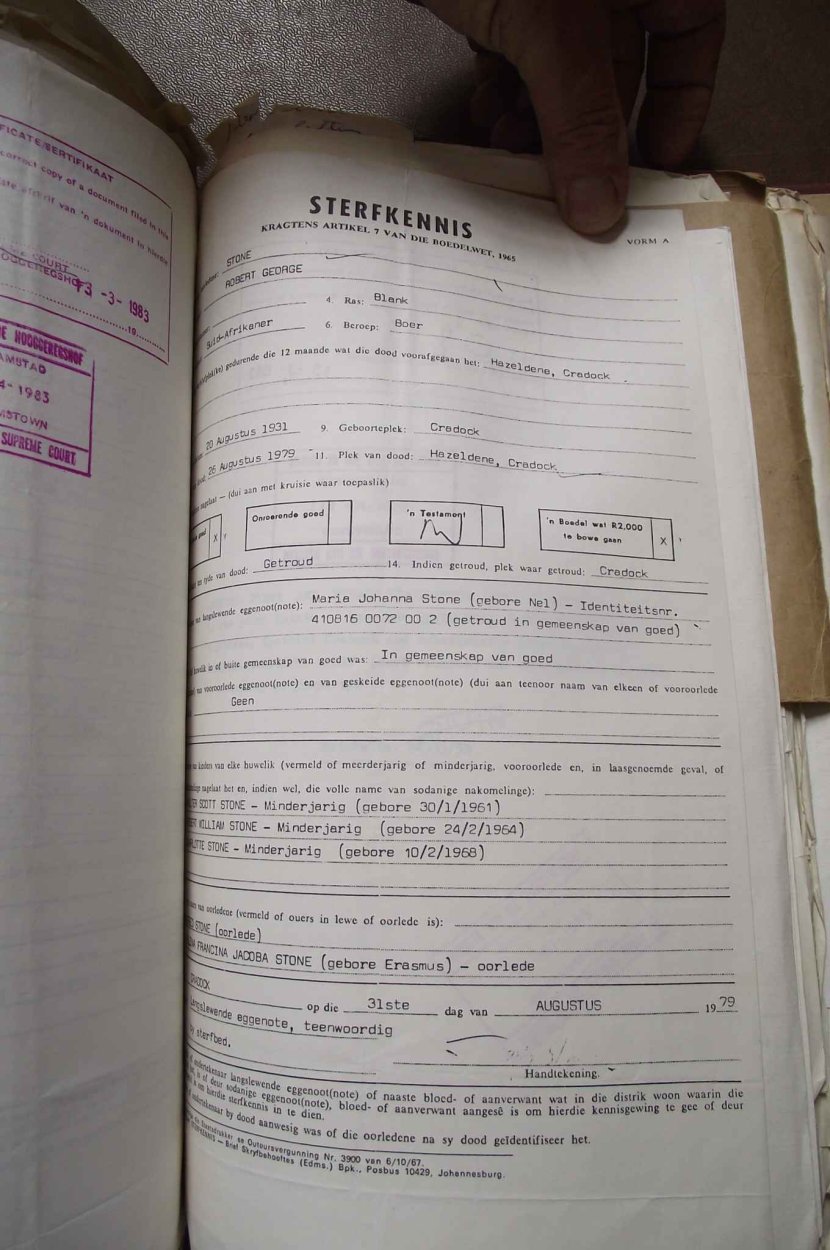 FICATE/SERTIFIKAAT
correct copy of a document filed in this
van 'n dokument in hierdie
COURT
13 -3- 1983
19
HOOGGEREGSHOF
AMSTAD
4-1983
MSTOWN
SUPREME COURT
STERFKENNIS
KRAGTENS ARTIKEL 7 VAN DIE BOEDELWET, 1965
VORM A
STONE
ROBERT GEORGE
4. Ras: Blank
Suid-Afrikaner 6. Beroep: Boer
gedurende die 12 maande wat die dood voorafgegaan het: Hazeldene, Cradock
20 Augustus 1931 9. Geboorteplek: Cradock
26 Augustus 1979 11. Plek van dood: Hazeldene, Cradock
nagelaat — (dui aan met kruisie waar toepaslik)
goed X Onroerende goed 'n Testament 'n Boedel wat R2,000 te bowe gaan X
ten tyde van dood: Getroud 14. Indien getroud, plek waar getroud: Cradock
van langslewende eggenoot(note): Maria Johanna Stone (gebore Nel) – Identiteitsnr.
410816 0072 00 2 (getroud in gemeenskap van goed)
huwelik in of buite gemeenskap van goed was: In gemeenskap van goed
van vooroorlede eggenoot(note) en van geskeide eggenoot(note) (dui aan teenoor naam van elkeen of vooroorlede
Geen
van kinders van elke huwelik (vermeld of meerderjarig of minderjarig, vooroorlede en, in laasgenoemde geval, of
nagelaat het en, indien wel, die volle name van sodanige nakomelinge):
SCOTT STONE – Minderjarig (gebore 30/1/1961)
WILLIAM STONE – Minderjarig (gebore 24/2/1964)
STONE – Minderjarig (gebore 10/2/1968)
van oorledene (vermeld of ouers in lewe of oorlede is):
STONE (oorlede)
FRANCINA JACOBA STONE (gebore Erasmus) – oorlede
op die 31ste dag van AUGUSTUS 1979
Langslewende eggenote, teenwoordig
by sterfbed.
Handtekening.
langslewende eggenoot(note) of naaste bloed- of aanverwant wat in die distrik woon waarin die
is of deur sodanige eggenoot(note), bloed- of aanverwant aangesê is om hierdie kennisgewing te gee of deur
is om hierdie sterfkennis in te dien.
by dood aanwesig was of die oorledene na sy dood geïdentifiseer het.
Staatsdrukker se Outeursvergunning Nr. 3900 van 6/10/67.
STERFKENNIS — Brief Skryfbehoeftes (Edms.) Bpk., Posbus 10429, Johannesburg.